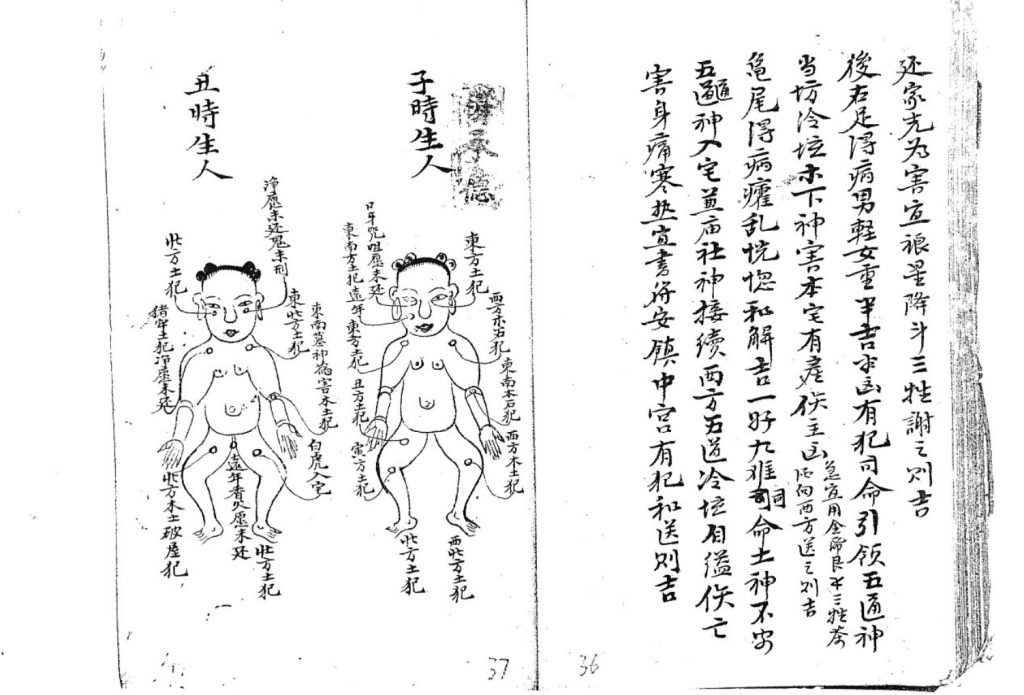 还家先为害宜禳星降斗三牲謝之则吉
後右足得病男軽女重半吉半凶有犯司命引领五道神
当坊冷坛木下神害本宅有産佚主凶
急宜用金銀良牙三牲茶
酒向西方送之则吉
亀尾得病癨乱恍惚和解吉一好九难司命土神不安
五道神入宅并庙社神接续西方五道冷坛自缢佚亡
害身痛寒热宜書符安鎮中宫有犯和送则吉
36
子時生人
東方土犯
西方木石犯
東南木石犯
西方木土犯
口牙咒咀愿未还
東南方土犯遠年
東方土犯
丑方土犯
寅方土犯
北方土犯
西北方土犯
丑時生人
净愿未还鬼未刑
東北方土犯
東南墓神为害本土犯
白虎入宅
北方土犯
猪牢土犯净愿未还
北方木土破屋犯
遠年香火愿未还
北方土犯
37